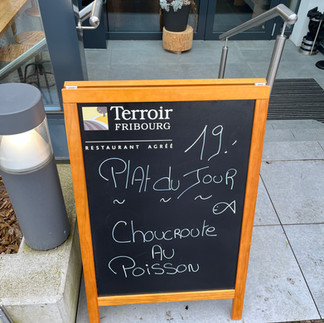 Terroir
FRIBOURG
RESTAURANT AGRÉÉ
19.-
PlAt du JOUR
~ ~ ~
CHOUCROUTE
AU
POISSON